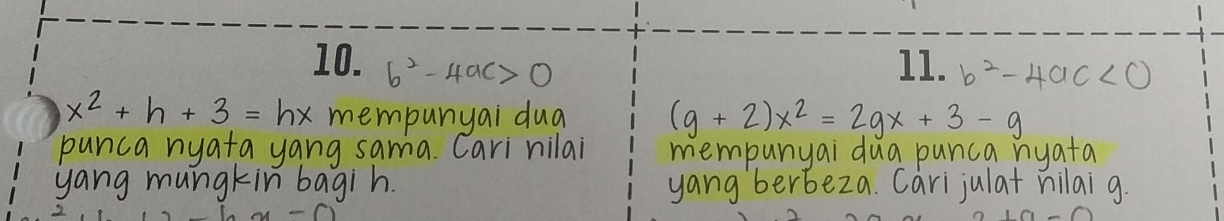 10. b² - 4ac > 0
x² + h + 3 = hx mempunyai dua
punca nyata yang sama. Cari nilai
yang mungkin bagi h.
11. b² - 4ac < 0
(g + 2)x² = 2gx + 3 - g
mempunyai dua punca nyata
yang berbeza. Cari julat nilai g.